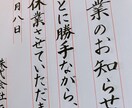 業のお知らせ
ことに勝手ながら、
休業させていただきま
月八日
株式会